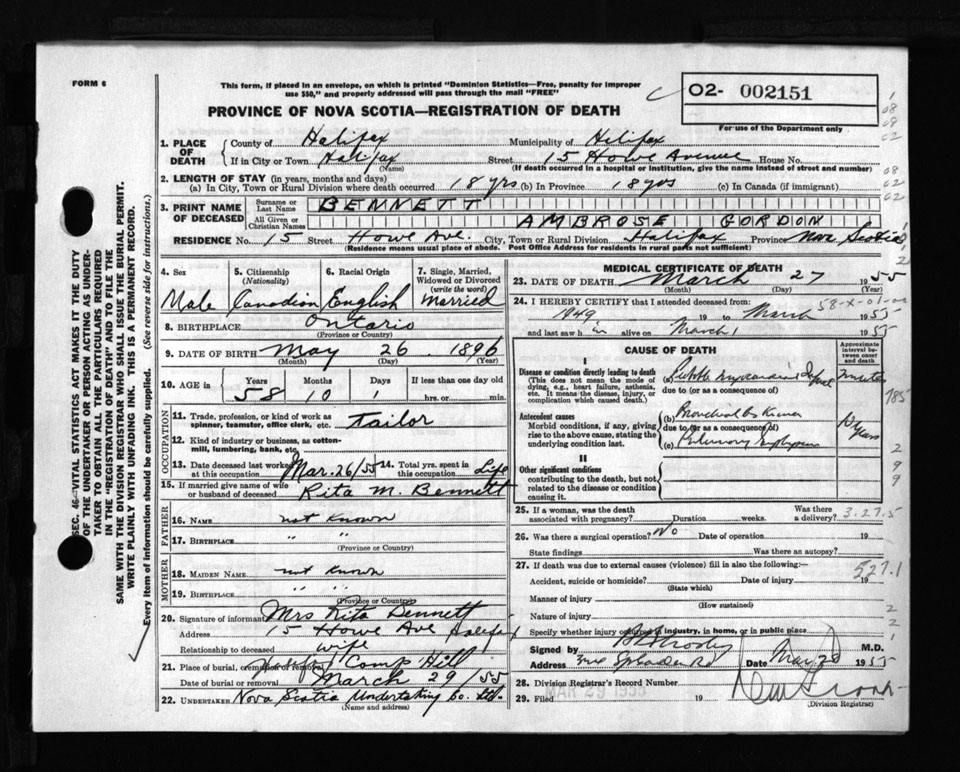 FORM 6
This form, if placed in an envelope, on which is printed "Dominion Statistics—Free, penalty for improper
use $50," and properly addressed will pass through the mail "FREE"
PROVINCE OF NOVA SCOTIA—REGISTRATION OF DEATH
O2- 002151
For use of the Department only
1. PLACE OF DEATH
County of Halifax Municipality of Halifax
If in City or Town Halifax Street 15 Howe Avenue House No.
(Name) (If death occurred in a hospital or institution, give its name instead of street and number)
2. LENGTH OF STAY (in years, months and days)
(a) In City, Town or Rural Division where death occurred 18 yrs (b) In Province 18 yrs (c) In Canada (if immigrant)
3. PRINT NAME OF DECEASED
Surname or Last Name BENNETT
All Given or Christian Names AMBROSE GORDON
RESIDENCE No. 15 Street Howe Ave. City, Town or Rural Division Halifax Province Nova Scotia
(Residence means usual place of abode. Post Office Address for residents in rural parts not sufficient)
4. Sex Male
5. Citizenship (Nationality) Canadian
6. Racial Origin English
7. Single, Married, Widowed or Divorced (write the word) Married
8. BIRTHPLACE Ontario
(Province or Country)
9. DATE OF BIRTH May 26 1896
(Month) (Day) (Year)
10. AGE in Years 58 Months 10 Days 1 If less than one day old
hrs. or min.
OCCUPATION
11. Trade, profession, or kind of work as
spinner, teamster, office clerk, etc. Tailor
12. Kind of industry or business, as cotton-
mill, lumbering, bank, etc.
13. Date deceased last worked at this occupation Mar. 26/55 14. Total yrs. spent in this occupation Life
15. If married give name of wife
or husband of deceased Rita M. Bennett
FATHER
16. NAME not known
17. BIRTHPLACE " "
(Province or Country)
MOTHER
18. MAIDEN NAME not known
19. BIRTHPLACE " "
(Province or Country)
20. Signature of informant Mrs Rita Bennett
Address 15 Howe Ave Halifax
Relationship to deceased wife
21. Place of burial, cremation or removal Camp Hill
Date of burial or removal March 29/55
22. UNDERTAKER Nova Scotia Undertaking Co. Ltd.
(Name and address)
MEDICAL CERTIFICATE OF DEATH
23. DATE OF DEATH March 27 1955
(Month) (Day)
24. I HEREBY CERTIFY that I attended deceased from:
58-X-01-00
1949 19 to March 1955
and last saw h im alive on March 1 1955
CAUSE OF DEATH
Approximate interval between onset and death
I
Disease or condition directly leading to death
(This does not mean the mode of dying, e.g., heart failure, asthenia, etc. It means the disease, injury, or complication which caused death.)
(a) myocardial minutes
due to (or as a consequence of)
785
Antecedent causes
Morbid conditions, if any, giving rise to the above cause, stating the underlying condition last.
(b)
due to (or as a consequence of)
(c) Pulmonary Emphysema
10 years
II
Other significant conditions
contributing to the death, but not related to the disease or condition causing it.
25. If a woman, was the death associated with pregnancy? Duration weeks. Was there a delivery?
3.27.5
26. Was there a surgical operation? No Date of operation 19
State findings Was there an autopsy?
27. If death was due to external causes (violence) fill in also the following:
527.1
Accident, suicide or homicide? Date of injury 19
(State which)
Manner of injury
(How sustained)
Nature of injury
Specify whether injury occurred in industry, in home, or in public place
Signed by M.D.
Address Date Mar 28 1955
28. Division Registrar's Record Number
29. Filed 19
MAR 29 1955
(Division Registrar)
SEC. 46—VITAL STATISTICS ACT MAKES IT THE DUTY
OF THE UNDERTAKER OR PERSON ACTING AS UNDER-
TAKER TO OBTAIN ALL THE PARTICULARS REQUIRED
IN THE "REGISTRATION OF DEATH" AND TO FILE THE
SAME WITH THE DIVISION REGISTRAR WHO SHALL ISSUE THE BURIAL PERMIT.
WRITE PLAINLY WITH UNFADING INK. THIS IS A PERMANENT RECORD.
Every item of information should be carefully supplied. (See reverse side for instructions.)